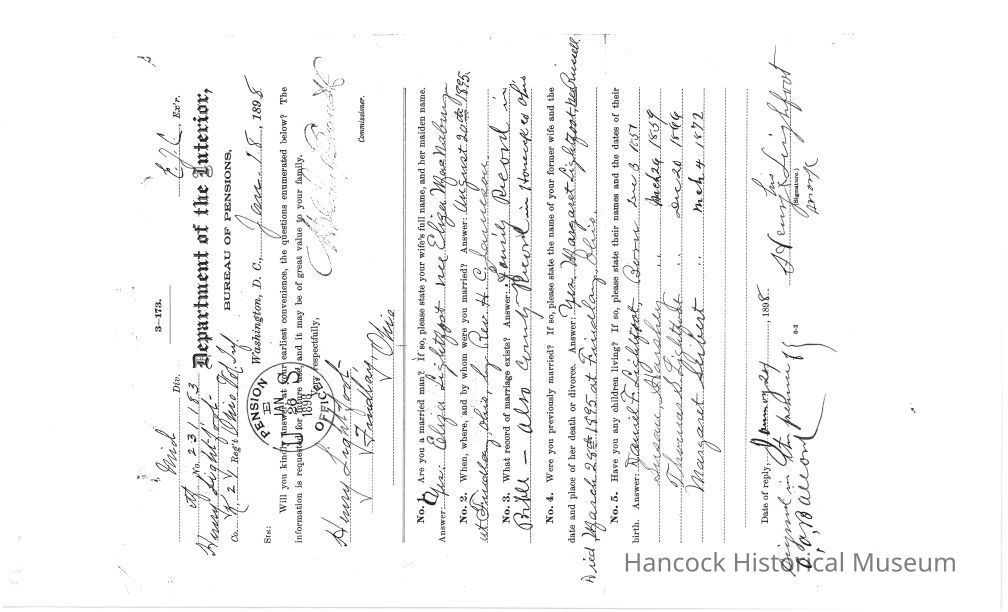 3-173.
Div.
Ex'r.
No. 231183
Department of the Interior,
Henry Lightfoot
Co. Reg't Ohio
BUREAU OF PENSIONS,
Washington, D. C., Jan. 18, 1898.
SIR:
Will you kindly answer, at your earliest convenience, the questions enumerated below? The
information is requested for future use, and it may be of great value to your family.
Very respectfully,
Commissioner.
Henry Lightfoot
Findlay,
Ohio
PENSION
JAN 26
1898
OFFICE
No. 1. Are you a married man? If so, please state your wife's full name, and her maiden name.
Answer: Yes: Eliza Lightfoot nee Eliza
No. 2. When, where, and by whom were you married? Answer: August 20th 1895.
at Findlay, Ohio, by Rev. H. C. Jameson
No. 3. What record of marriage exists? Answer: Family Record in
Bible — also County Record in Hancock Co Ohio
No. 4. Were you previously married? If so, please state the name of your former wife and the
date and place of her death or divorce. Answer: Yes, Margaret Lightfoot,
Died March 28th 1895 at Findlay, Ohio.
No. 5. Have you any children living? If so, please state their names and the dates of their
birth. Answer: Daniel F. Lightfoot, Born Dec 3 1857
Mch 29 1859
Thomas S. Lightfoot ... Dec 20 1866
Margaret ... Mch 4 1872
Date of reply, January 24, 1898.
Henry Lightfoot
his
mark
(Signature.)
Signed in the presence of
Hancock Historical Museum